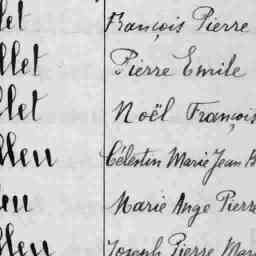 let François Pierre
llet Pierre Emile
llet Noël François
lleu Célestin Marie Jean B
leu Marie Ange Pierre
lleu Joseph Pierre Mar